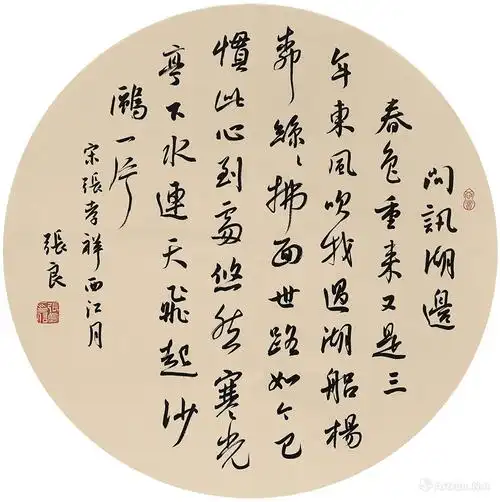 問訊湖邊
春色重来又是三
年東風吹我過湖船楊
柳絲〻拂面世路如今已
慣此心到處悠然寒光
亭下水連天飛起沙
鷗一片
宋張孝祥西江月
張良